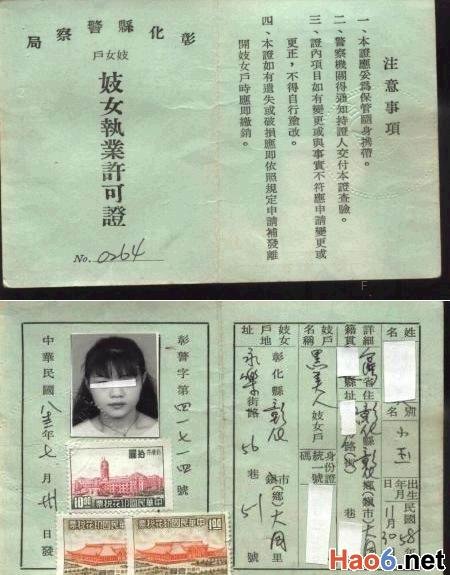 彰化縣警察局
妓女戶
妓女執業許可證
No. 0264
注意事項
一、本證應妥為保管隨身携帶。
二、警察機關得通知持證人交付本證查驗。
三、證內項目如有變更或與事實不符應申請變更或
更正，不得自行塗改。
四、本證如有遺失或破損應即依照規定申請補發離
開妓女戶時應即繳銷。
姓名
別
小玉
出生年月日
民國58年11月30
籍貫
詳細住址
省
彰化縣
鄉(鎮市)
大同
里
路(街)
巷
號
妓女戶名稱
黑美人
妓女戶
身份證統一號碼
妓女戶地址
彰化縣彰化
市鎮(鄉)
大同里
永樂街路56巷51號
彰警字第四一七一四號
中華民國八三年七月卅日發
拾圓
中華民國印花稅票
10.00
中華民國印花稅票
1.00
Hao6.net